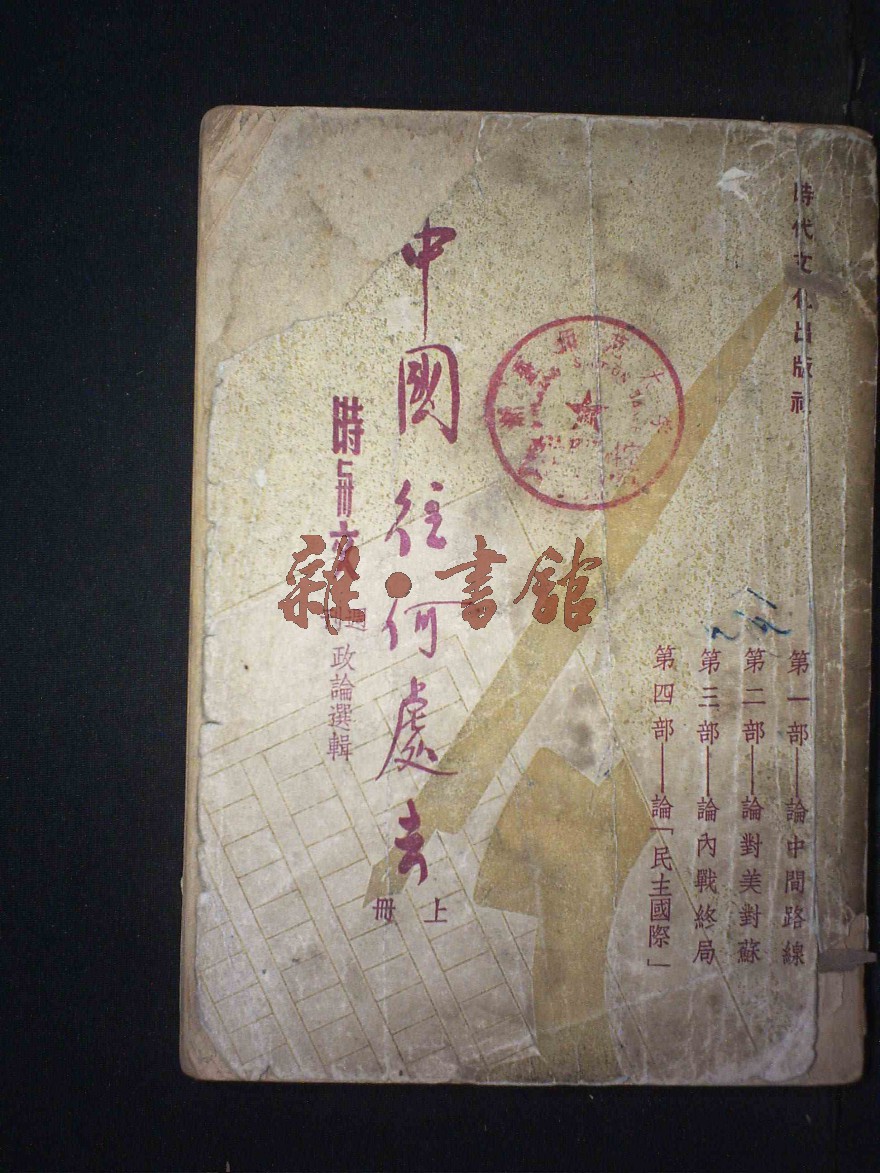 時代文化出版社
第一部——論中間路線
第二部——論對美對蘇
第三部——論內戰終局
第四部——論「民主國際」
中國往何處去
上冊
時與文
週刊
政論選輯
雜·書館